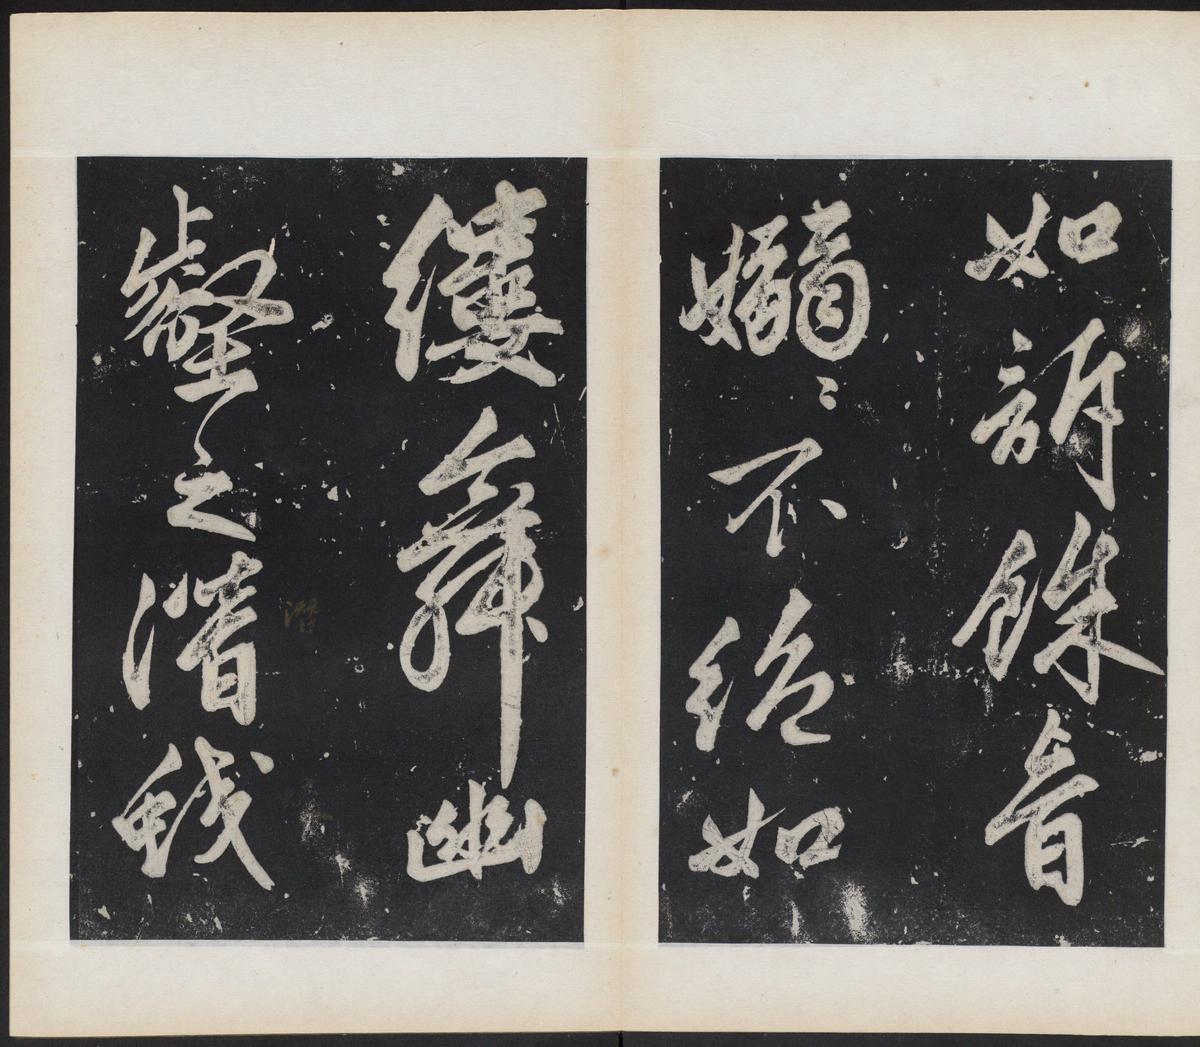 如訴餘音
嫋〻不絕如
縷舞幽
壑之潛蛟
潛